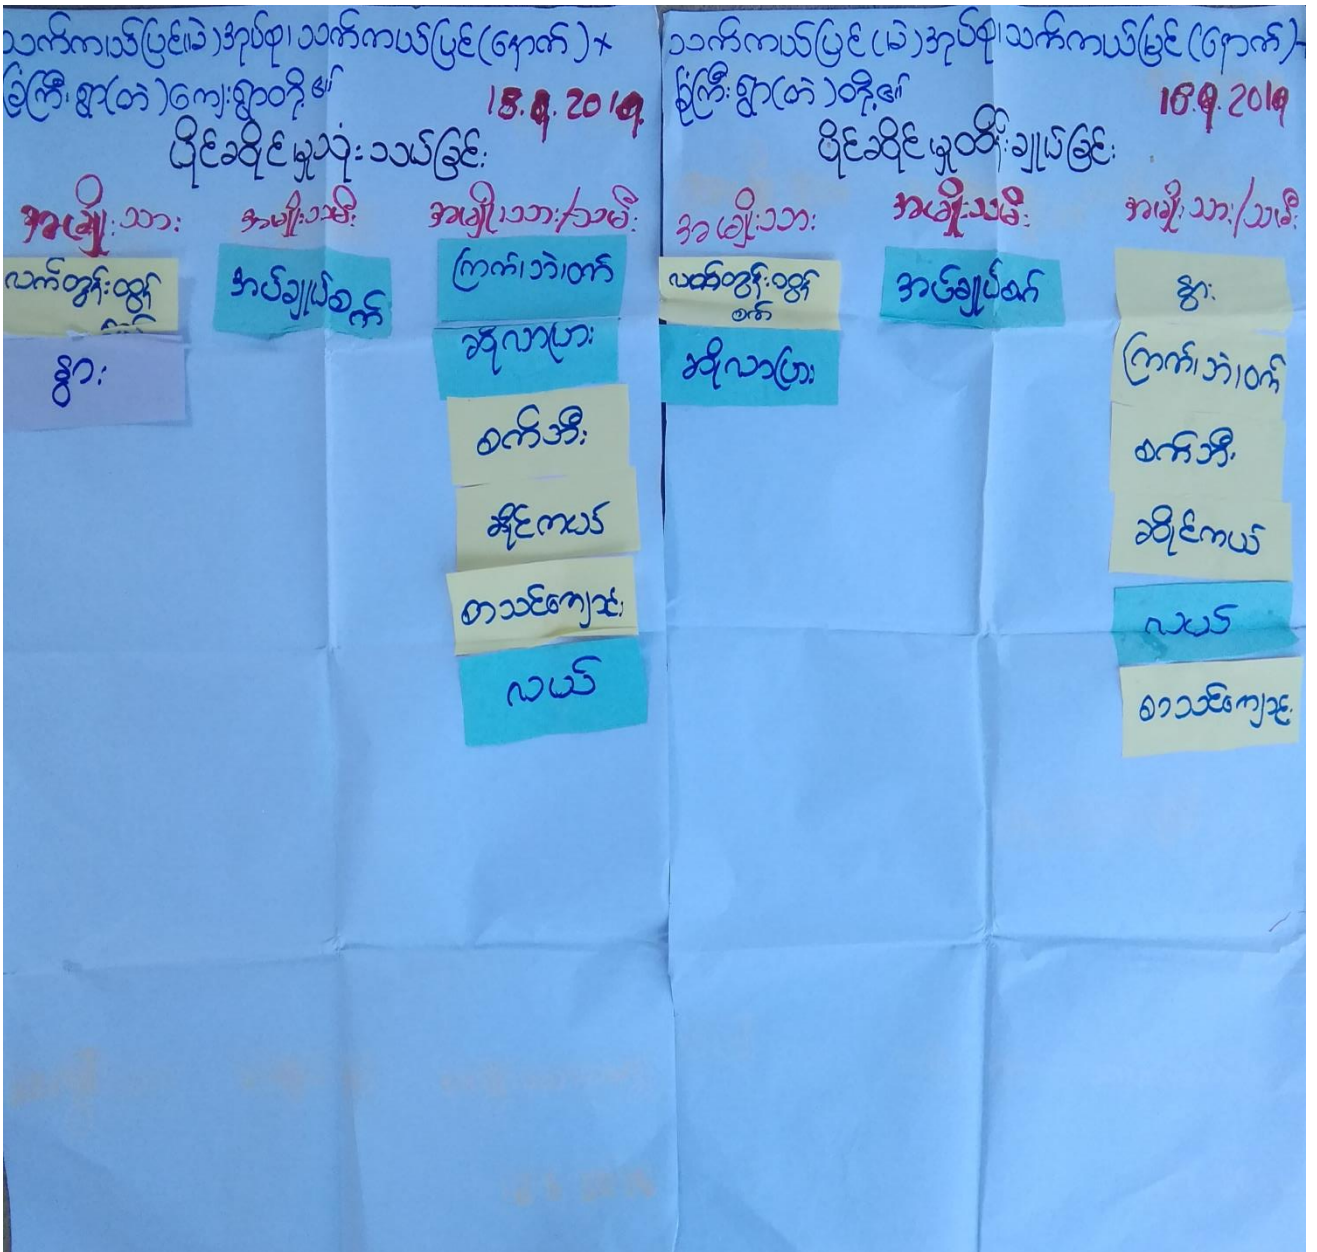 သက်ကယ်ပြင်(မဲ)အုပ်စု၊ သက်ကယ်ပြင်(နောက်)+
ခြုံကြီးရွာ(တဲ)ကျေးရွာဝတို့၏
18.9.2019.
ပိုင်ဆိုင်မှုသုံးသယ်ခြင်း
အမျိုးသား
အမျိုးသမီး
အမျိုးသား/သမီး
လက်တွန်းထွန်
စက်
နွား
အပ်ချုပ်စက်
ကြက်၊ဘဲ၊ဝက်
ဆိုလာပြား
စက်ဘီး
ဆိုင်ကယ်
စာသင်ကျောင်း
လယ်
သက်ကယ်ပြင်(မဲ)အုပ်စု၊သက်ကယ်ပြင်(နောက်)+
ခြုံကြီးရွာ(တဲ)ဝတို့၏
18.9.2019
ပိုင်ဆိုင်မှုထိန်းချုပ်ခြင်း
အမျိုးသား
အမျိုးသမီး
အမျိုးသား/သမီး
လက်တွန်းထွန်
စက်
ဆိုလာပြား
အပ်ချုပ်စက်
နွား
ကြက်၊ဘဲ၊ဝက်
စက်ဘီး
ဆိုင်ကယ်
လယ်
စာသင်ကျောင်း